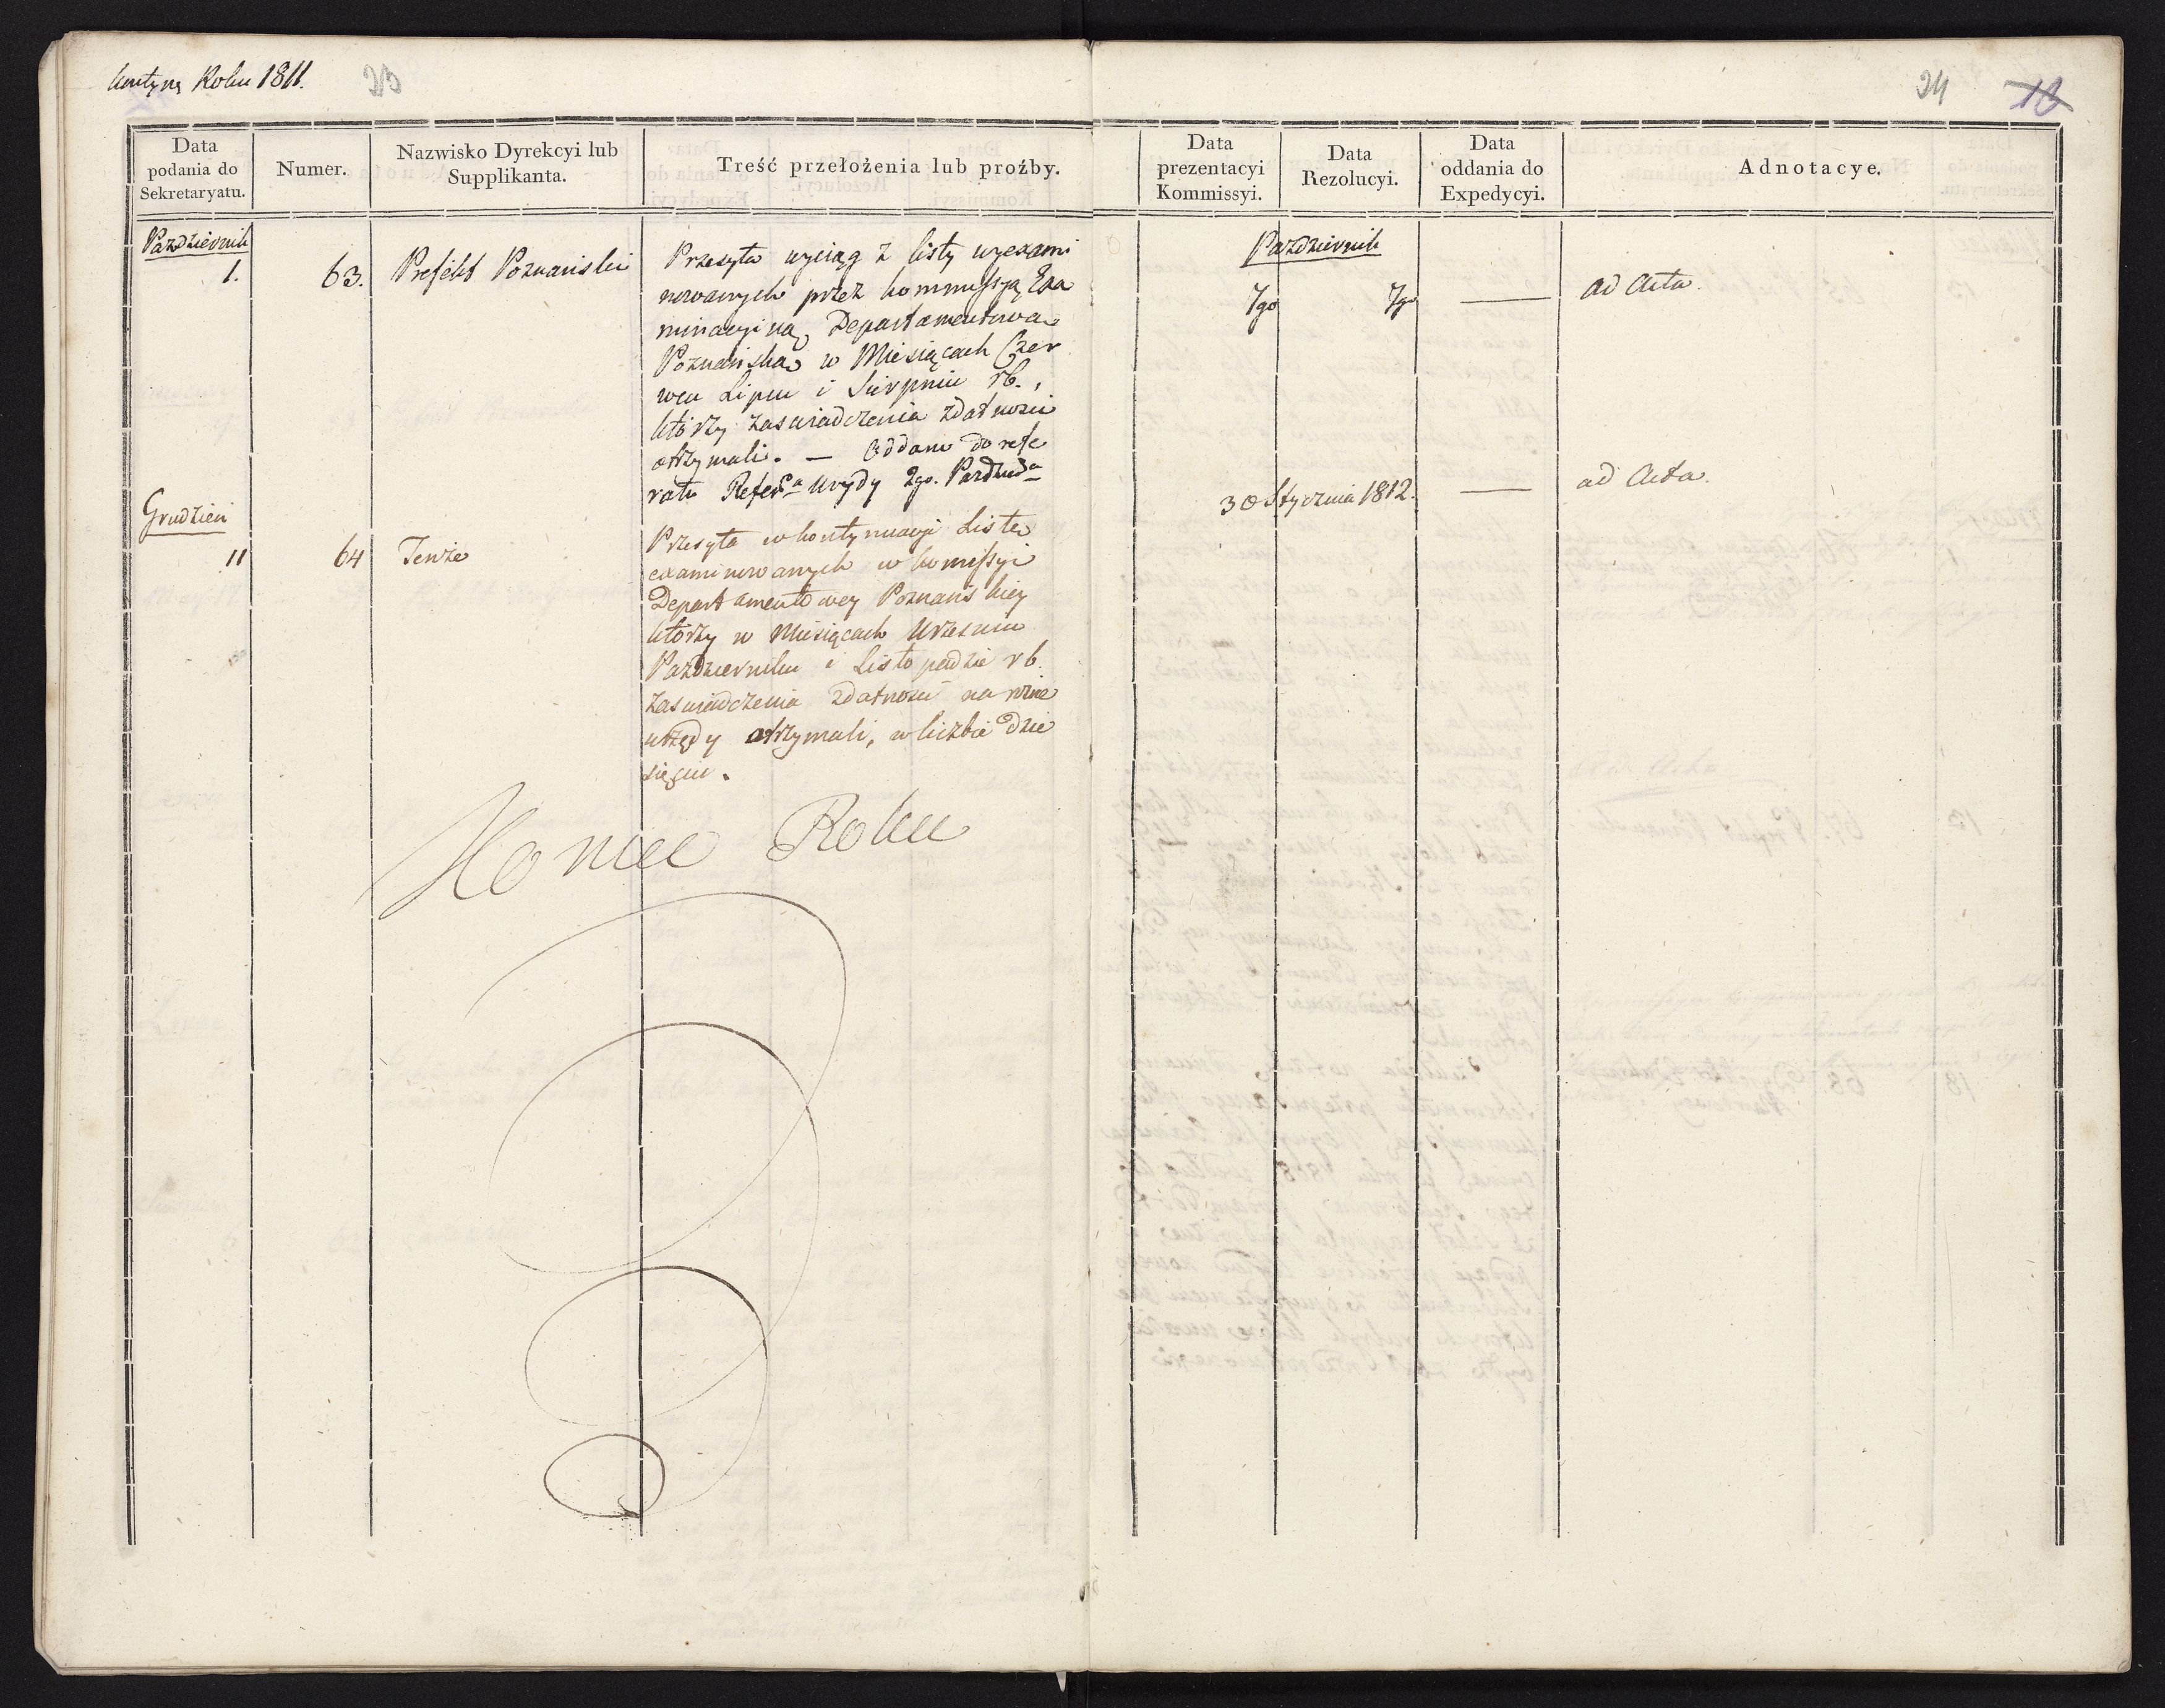 Kontyng Roku 1811.
23
24
18
Data
podania do
Sekretaryatu.
Numer.
Nazwisko Dyrekcyi lub
Supplikanta.
Treść przełożenia lub proźby.
Data
prezentacyi
Kommissyi.
Data
Rezolucyi.
Data
oddania do
Expedycyi.
Adnotacye.
Pazdziernik
1.
63.
Prefekt Poznanski
Przesyła wyciąg z listy wyexami
nowanych przez Kommissyą Exa
minacyiną Departamentową
Poznanską w Miesiącach Czer
wcu Lipcu i Sierpniu rb.,
którzy zaswiadczenia zdatnosci
otrzymali. — Oddano do refe
ratu 2go.
Pazdziernik
7go
7go
ad Acta.
Grudzien
11
64
Tenże
Przesyła w kontynuacyi Listę
examinowanych w Komissyi
Departamentowey Poznanskiey
którzy w Miesiącach Wrzesniu
Pazdzierniku i Listopadzie rb.
zaswiadczenia zdatnosci na rożne
urzędy otrzymali, w liczbie dzie
sięciu.
30 Stycznia 1812.
ad Acta.
Koniec Roku